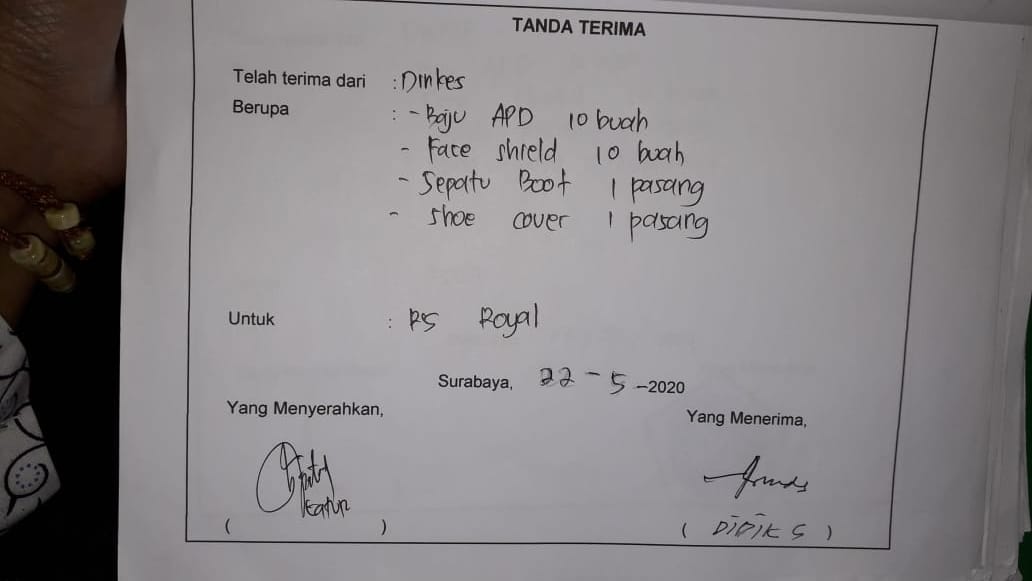 TANDA TERIMA
Telah terima dari : Dinkes
Berupa : - Baju APD 10 buah
- Face shield 10 buah
- Sepatu Boot 1 pasang
- Shoe cover 1 pasang
Untuk : RS Royal
Surabaya, 22 - 5 -2020
Yang Menyerahkan, Yang Menerima,
( ) ( DIDIK S )